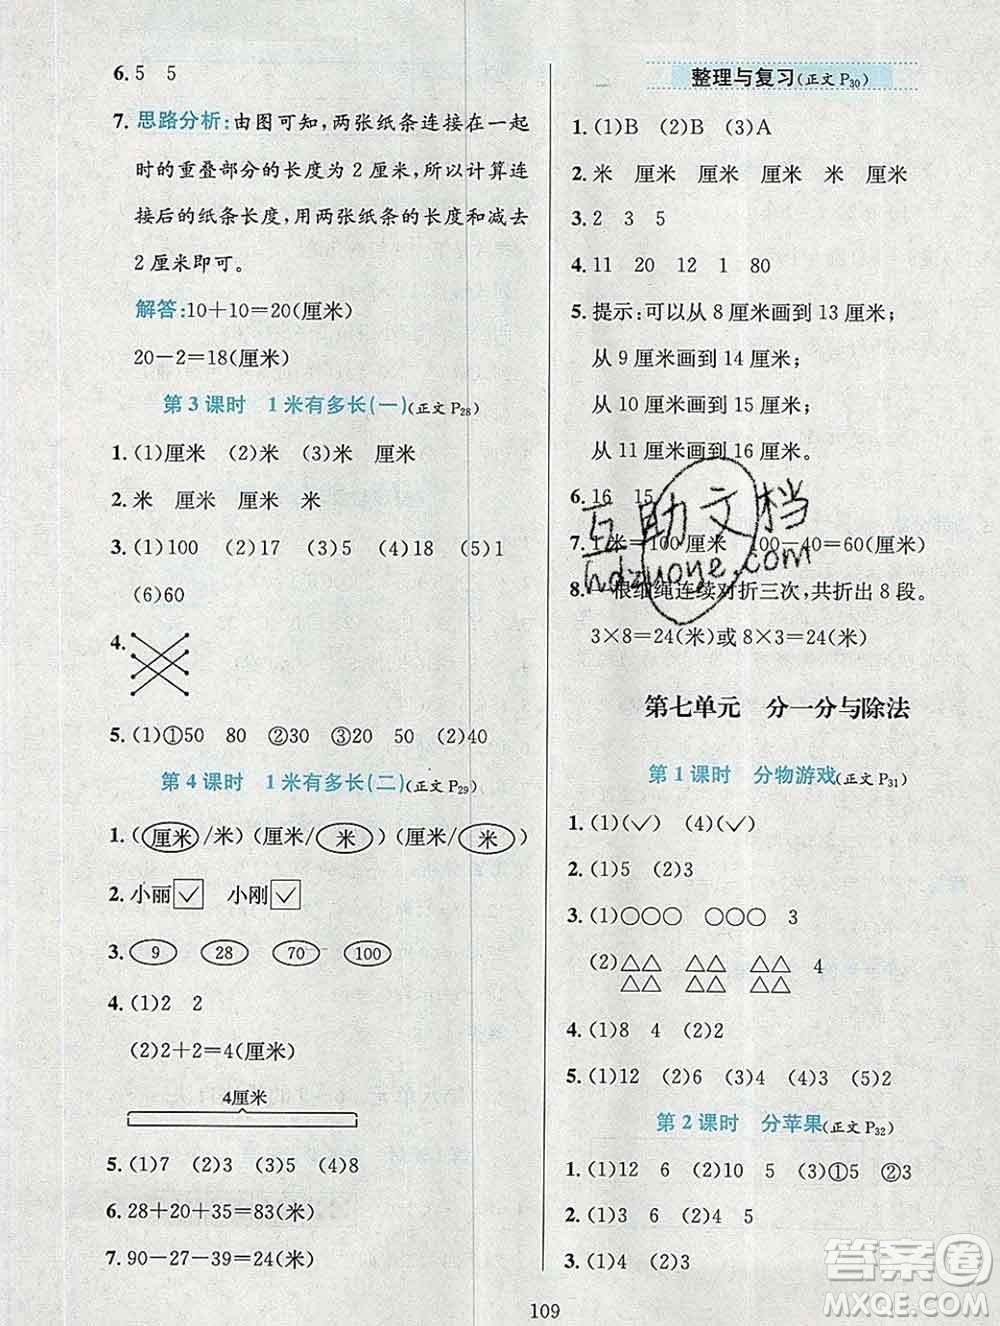 6. 5  5
7. 思路分析:由图可知,两张纸条连接在一起
时的重叠部分的长度为 2 厘米,所以计算连
接后的纸条长度,用两张纸条的长度和减去
2 厘米即可。
解答:10+10=20(厘米)
20-2=18(厘米)
第 3 课时  1 米有多长(一)(正文 P28)
1. (1)厘米  (2)米  (3)米  厘米
2. 米  厘米  厘米  米
3. (1)100  (2)17  (3)5  (4)18  (5)1
(6)60
4.
5. (1)①50  80  ②30  ③20  (2)40
第 4 课时  1 米有多长(二)(正文 P29)
1. (厘米/米) (厘米/米) (厘米/米)
2. 小丽☑  小刚☑
3. 9  28  70  100
4. (1)2  2
(2)2+2=4(厘米)
4厘米
5. (1)7  (2)3  (3)5  (4)8
6. 28+20+35=83(米)
7. 90-27-39=24(米)
整理与复习(正文 P30)
1. (1)B  (2)B  (3)A
2. 米  厘米  厘米  厘米  米  厘米
3. 2  3  5
4. 11  20  12  1  80
5. 提示:可以从 8 厘米画到 13 厘米;
从 9 厘米画到 14 厘米;
从 10 厘米画到 15 厘米;
从 11 厘米画到 16 厘米。
6. 16  15
7. 1米=100厘米  100-40=60(厘米)
8. 一根细绳连续对折三次,共折出 8 段。
3×8=24(米)或 8×3=24(米)
第七单元  分一分与除法
第 1 课时  分物游戏(正文 P31)
1. (1)(✓)  (4)(✓)
2. (1)5  (2)3
3. (1)○○○  ○○○  3
(2)△△  △△  △△  4
△△  △△  △△
4. (1)8  4  (2)2
5. (1)12  6  (2)4  3  (3)12  (5)2
第 2 课时  分苹果(正文 P32)
1. (1)12  6  (2)10  5  (3)①5  ②3
2. (1)3  6  (2)4  5
3. (1)4  (2)3
109
互助文档
hdzuoye.com
答案圈
MXQE.COM